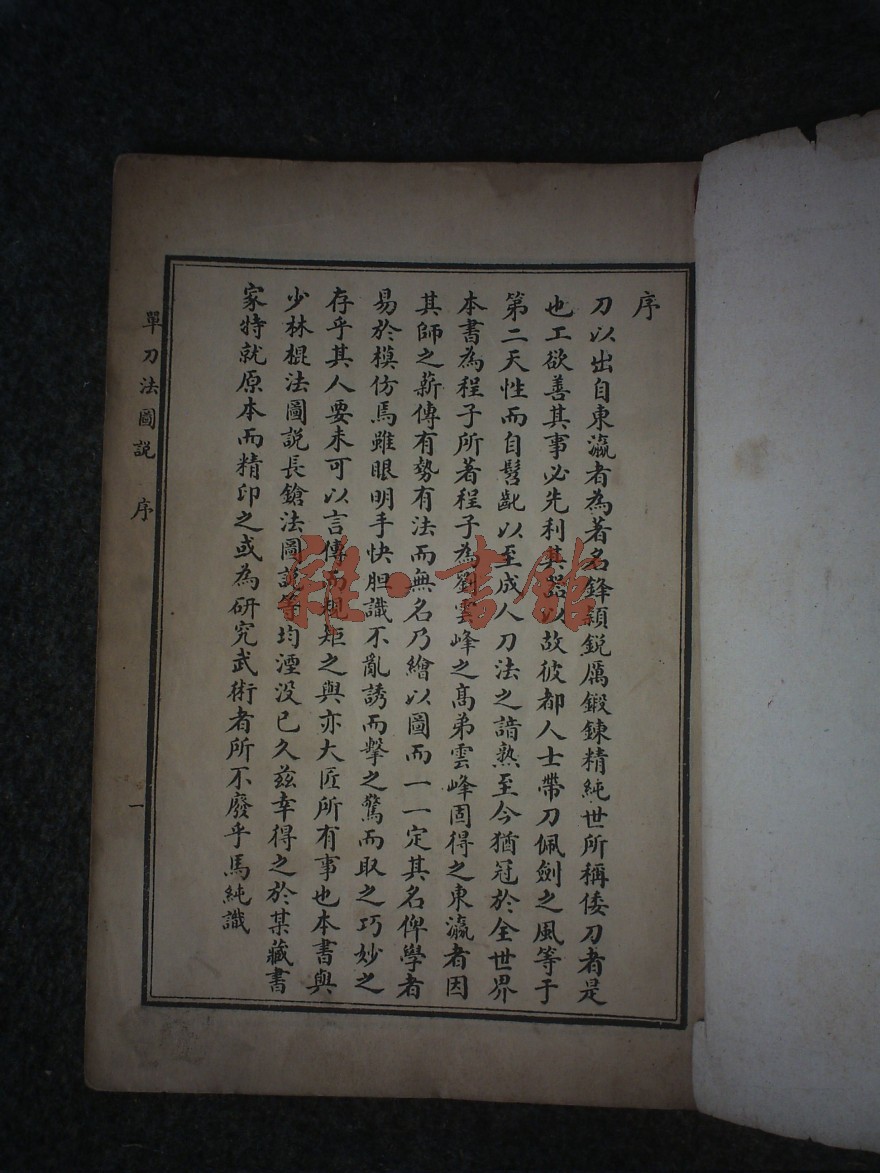 序
刀以出自東瀛者為著名鋒穎銳厲鍛鍊精純世所稱倭刀者是
也工欲善其事必先利其器以故彼都人士帶刀佩劍之風等于
第二天性而自髫齔以至成人刀法之諳熟至今猶冠於全世界
本書為程子所著程子為劉雲峰之高弟雲峰固得之東瀛者因
其師之薪傳有勢有法而無名乃繪以圖而一一定其名俾學者
易於模仿焉雖眼明手快胆識不亂誘而擊之驚而取之巧妙之
存乎其人要未可以言傳而規矩之與亦大匠所有事也本書與
少林棍法圖說長鎗法圖說等均湮没已久茲幸得之於某藏書
家特就原本而精印之或為研究武術者所不廢乎馬純識
單刀法圖說 序 一
雜·書館